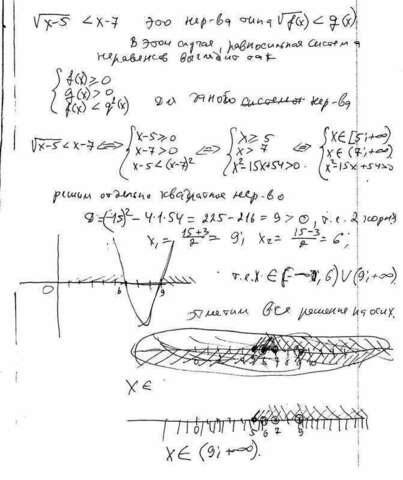 √x-5 < x-7 это нер-ва типа √f(x) < g(x)
В этом случае, равносильная система
неравенств выглядит так
{ f(x) ≥ 0
g(x) > 0
f(x) < g²(x)
нер-ва
√x-5 < x-7 ⇔ { x-5 ≥ 0 ⇔ { x ≥ 5 ⇔ { x ∈ [5; +∞)
x-7 > 0 x > 7 x ∈ (7; +∞)
x-5 < (x-7)² x²-15x+54 > 0 x²-15x+54 > 0
решим отдельно квадратное нер-во
D = (-15)² - 4·1·54 = 225 - 216 = 9 > 0, т.е. 2 корня
x₁ = 15+3/2 = 9; x₂ = 15-3/2 = 6;
0 6 9
т.е. x ∈ (-∞; 6) ∪ (9; +∞).
Отметим все решения на осях.
5 6 7 9
X ∈
5 6 7 9
X ∈ (9; +∞).